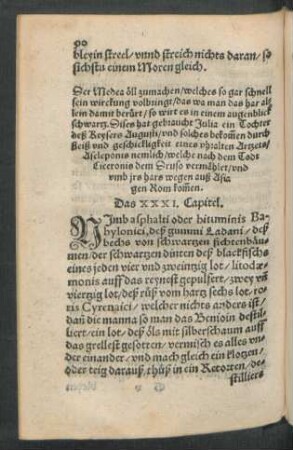 90
bleyin streel/vnnd streich nichts daran/so
sichstu einem Moren gleich.
Der Medea öll zumachen/welches so gar schnell
sein wirckung volbringt/das wa man das har al-
lein damit berürt/so würt es in einem augenblick
schwartz. Dises hat gebraucht Julia ein Tochter
deß Keysers Augusti/vnd solches bekom̃en durch
fleiß vnd geschickligkeit eines vhalten Artzets/
Ascleponis nemlich/welche nach dem Todt
Ciceronis dem Druso vermählet/vnd
vmb jrs hars wegen auß Asia
gen Rom kom̃en.
Das XXXI. Capitel.
NImb asphalti oder bituminis Ba-
bylonici, deß gummi Ladani, deß
bechs von schwartzen fichtenbäu-
men/der schwartzen dinten deß blackfischs
eines jeden vier vnd zweintzig lot/litodæ-
monis auff das reynest gepulfert/zwey vñ
viertzig lot/deß rüß vom hartz sechs lot/ro-
ris Cyrenaici/welcher nichts anders ist/
dañ die manna so man das Benioin destil-
liert/ein lot/deß öls mit silberschaum auff
das grellest gesotten/vermisch es alles vn-
der einander/vnd mach gleich ein klotzen/
oder teig darauß/thůß in ein Retorten/de-
stilliers